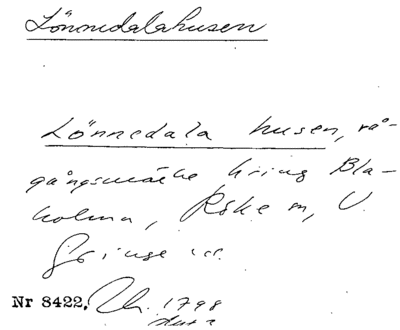 Lönnedalahusen
Lönnedala husen, rå-
gångsmärke kring Bla-
holma, Rske m, V.
Gringe
Nr 8422. 1798